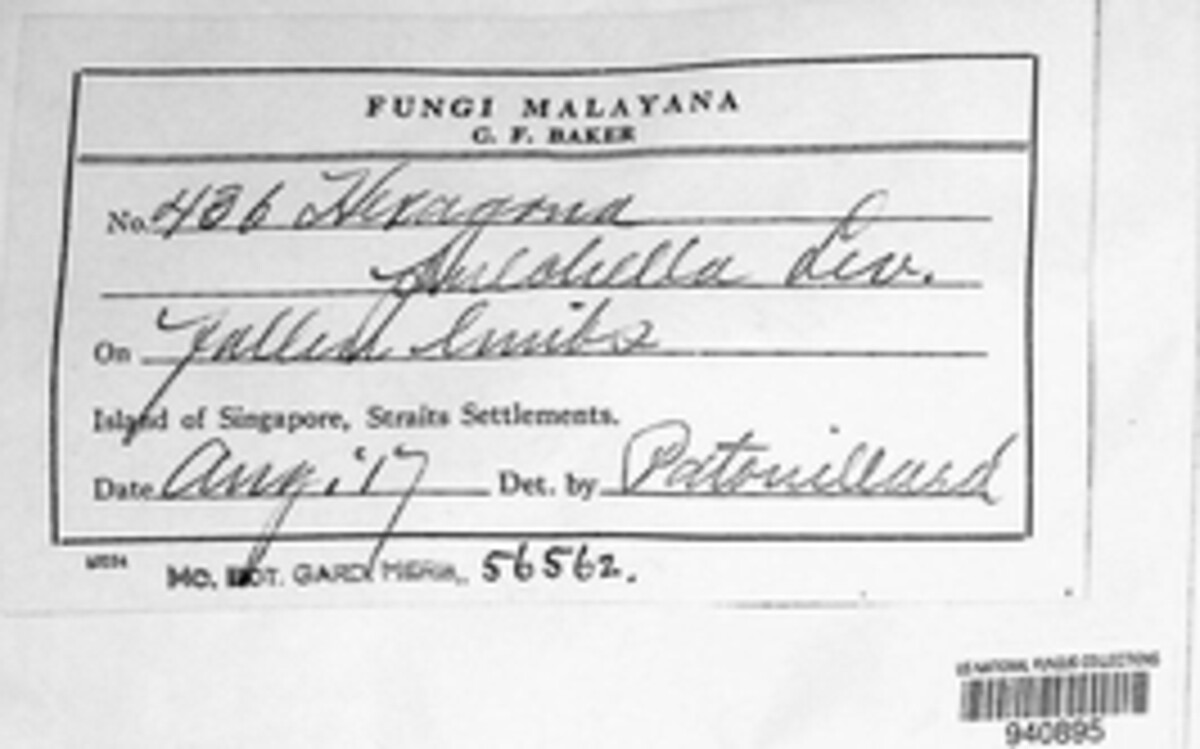 FUNGI MALAYANA
C. F. BAKER
No. 436 Hexagona
pulchella Lev.
On fallen limbs
Island of Singapore, Straits Settlements.
Date Aug. '17 Det. by Patouillard
MO. BOT. GARD. HERB., 56562.
US NATIONAL FUNGUS COLLECTIONS
940895